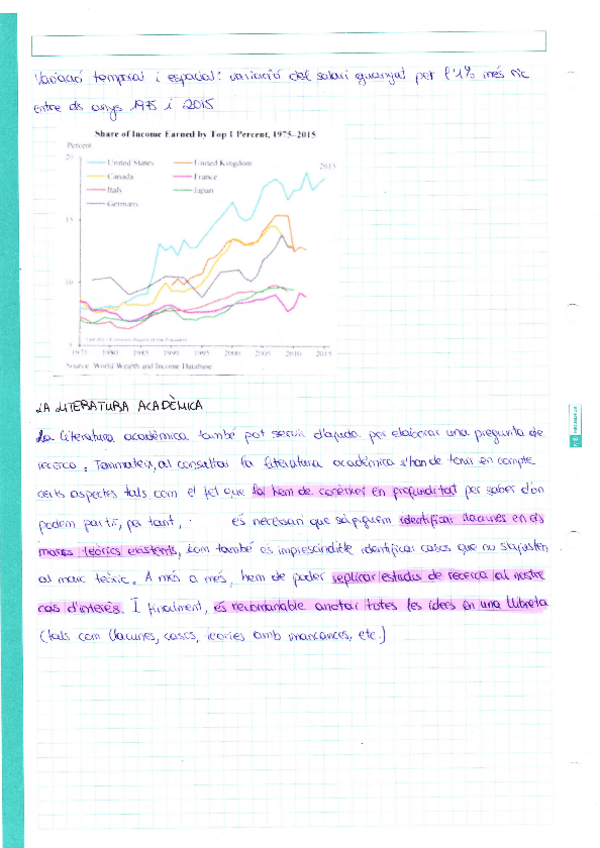 Variació temporal i espacial: variació del salari guanyat per l'1% més ric
entre els anys 1975 i 2015
Share of Income Earned by Top 1 Percent, 1975–2015
Percent
20
United States
United Kingdom
2015
Canada
France
Italy
Japan
15
Germany
10
5
0
1975 1980 1985 1990 1995 2000 2005 2010 2015
Source: World Wealth and Income Database
LA LITERATURA ACADÈMICA
La literatura acadèmica també pot servir d'ajuda per elaborar una pregunta de
recerca. Tanmateix, al consultar la literatura acadèmica s'han de tenir en compte
certs aspectes tals com el fet que la hem de conèixer en profunditat per saber d'on
podem partir, per tant, es necessari que sapiguem identificar llacunes en els
marcs teòrics existents, com també es imprescindible identificar casos que no s'ajusten
al marc teòric. A més a més, hem de poder replicar estudis de recerca al nostre
cas d'interès. I finalment, és recomanable anotar totes les idees en una llibreta
(tals com llacunes, casos, teories amb mancances, etc.)